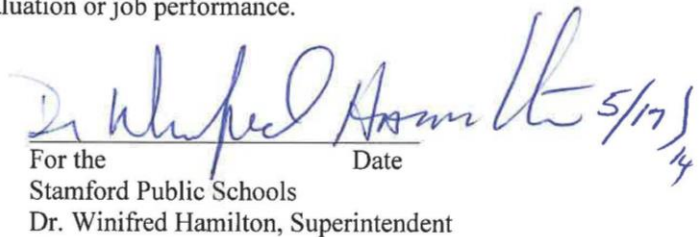 luation or job performance.
Dr Winifred Hamilton 5/17/14
For the Date
Stamford Public Schools
Dr. Winifred Hamilton, Superintendent